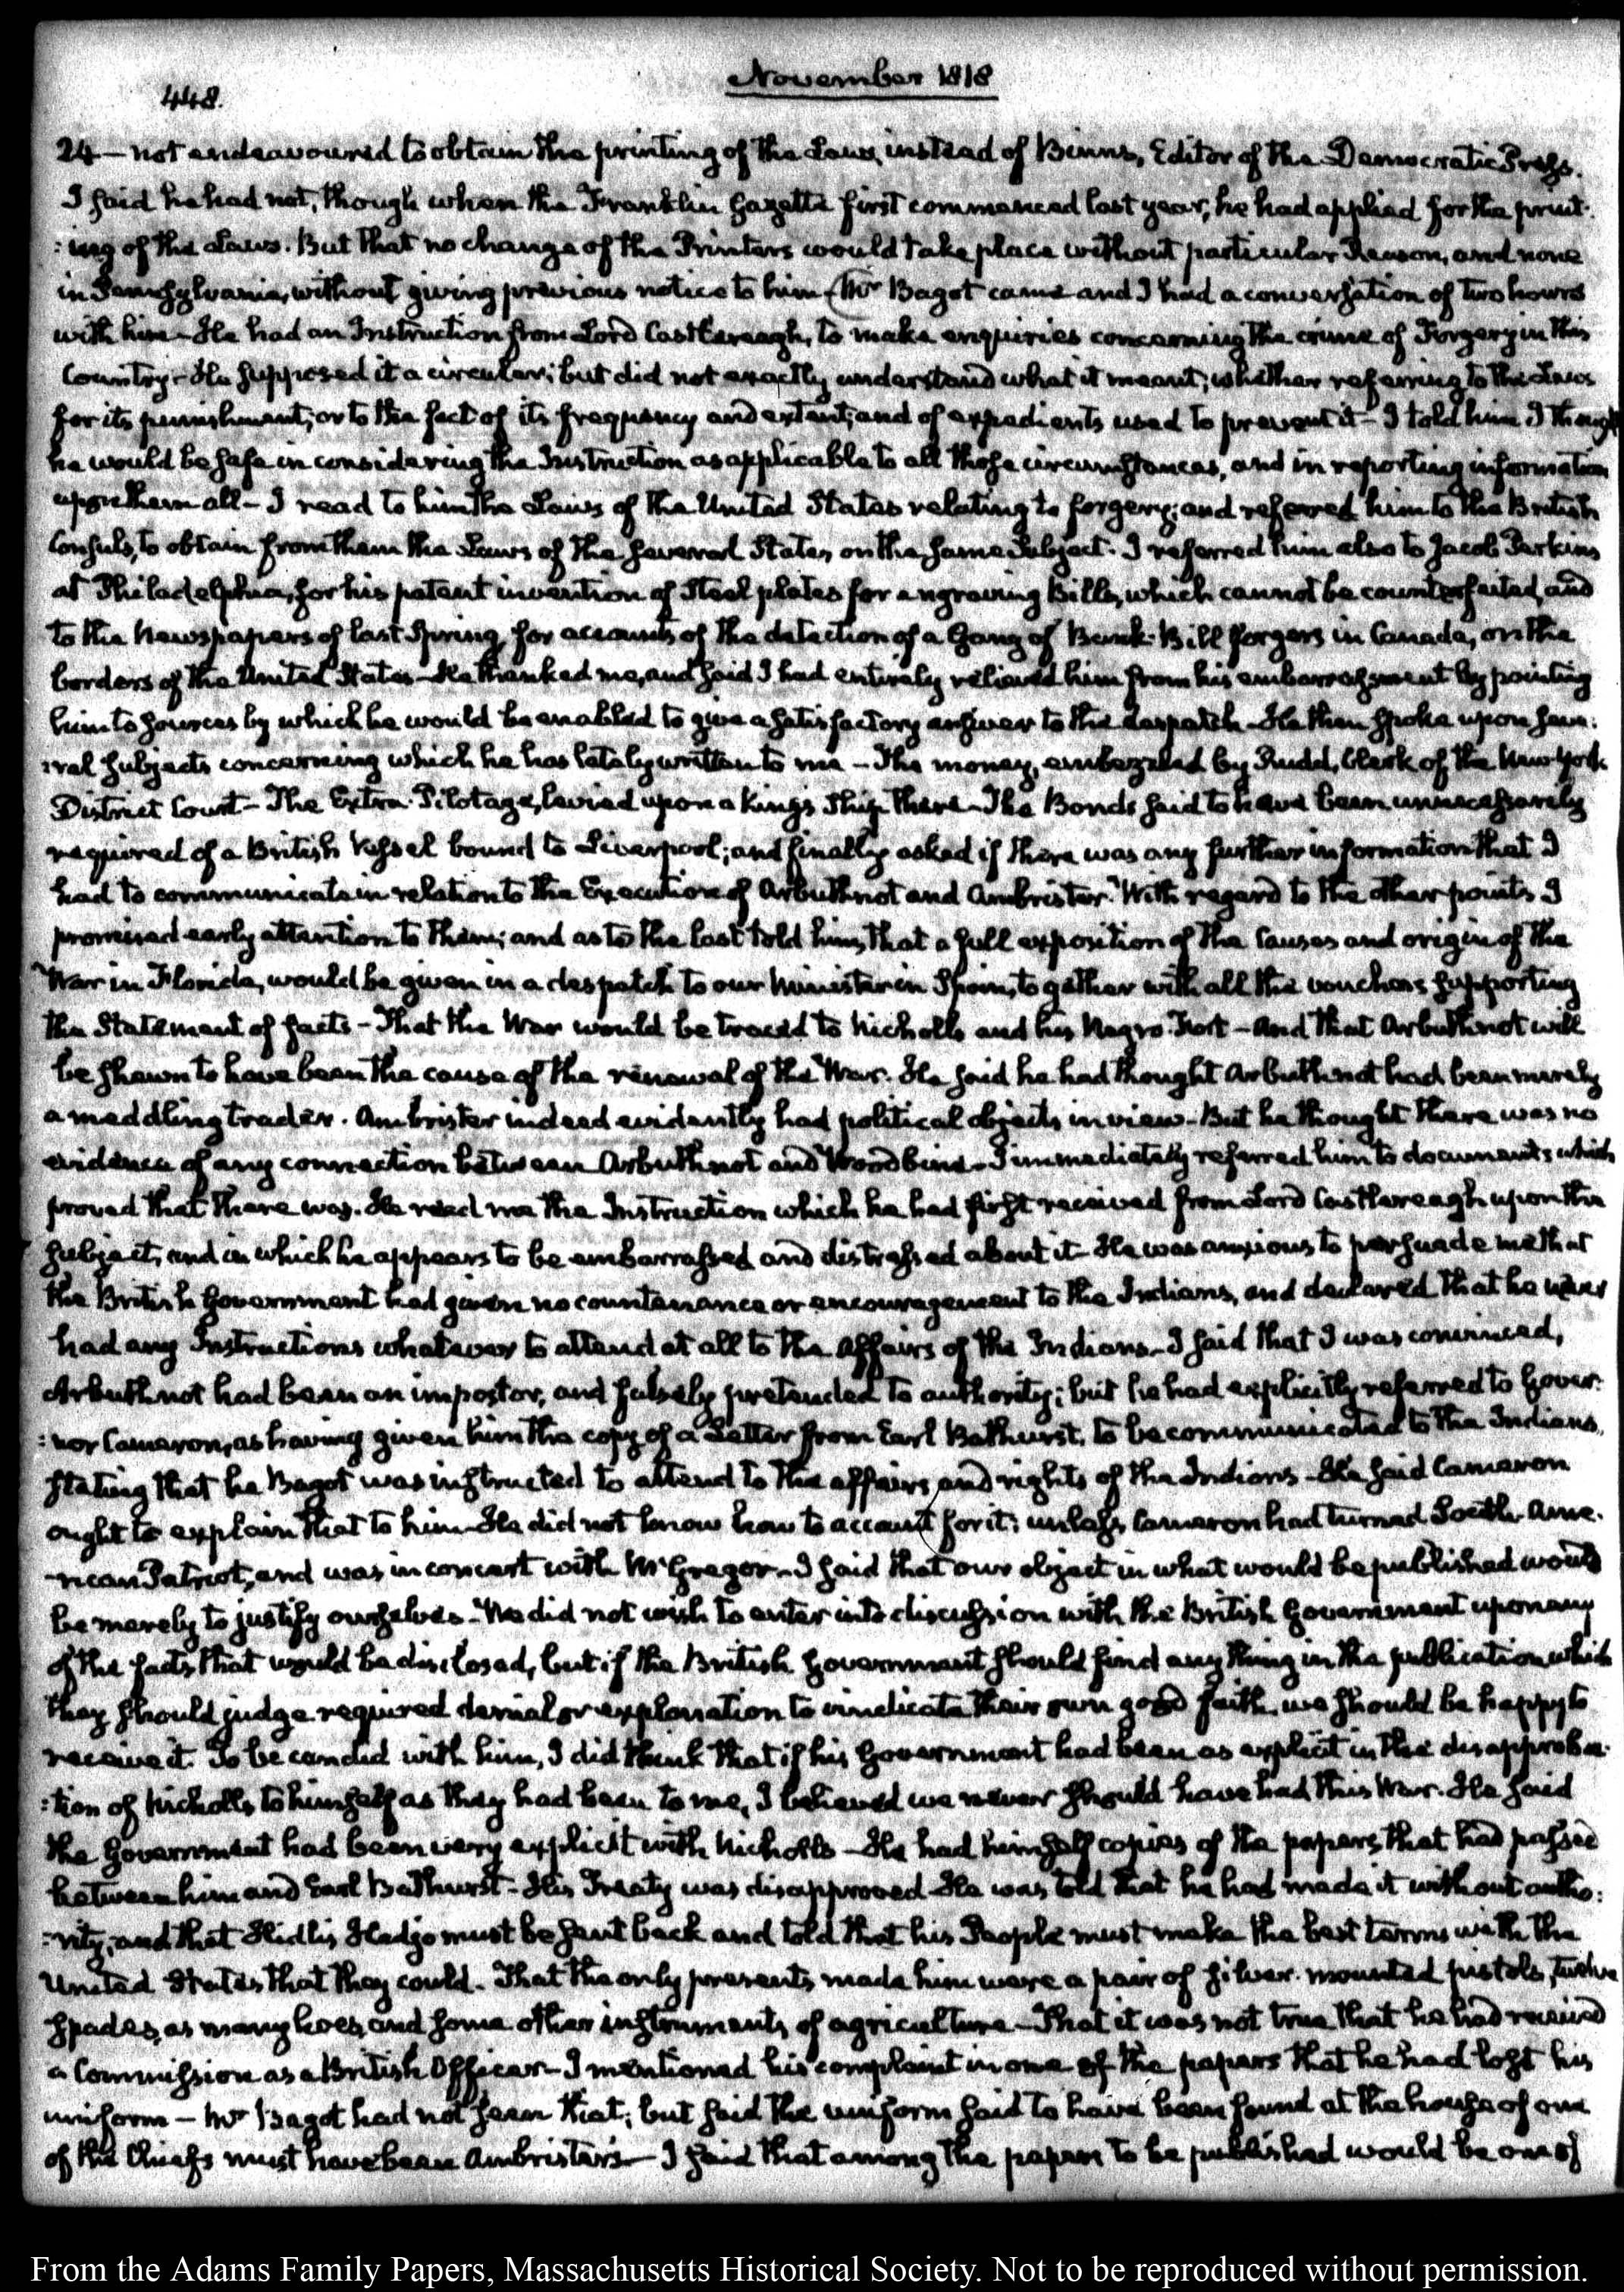 November 1818
448.
24 — not endeavoured to obtain the printing of the Laws, instead of Binns, Editor of the Democratic Press.
I said he had not, though when the Franklin Gazette first commenced last year, he had applied for the print:
:ing of the Laws. But that no change of the Printers would take place without particular Reason, and none
in Pennsylvania, without giving previous notice to him (Mr Bagot came and I had a conversation of two hours
with him — He had an Instruction from Lord Castlereagh, to make enquiries concerning the crime of Forgery in this
Country — He supposed it a circular; but did not exactly understand what it meant; whether referring to the Laws
for its punishment; or to the fact of its frequency and extent; and of expedients used to prevent it — I told him I thought
he would be safe in considering the Instruction as applicable to all those circumstances, and in reporting information
upon them all — I read to him the Laws of the United States relating to forgery; and referred him to the British
Consuls, to obtain from them the Laws of the several States, on the same Subject. I referred him also to Jacob Perkins
at Philadelphia, for his patent invention of Steel plates for engraving Bills, which cannot be counterfeited, and
to the Newspapers of last Spring for accounts of the detection of a Gang of Bank-Bill forgers in Canada, on the
borders of the United States — He thanked me, and said I had entirely relieved him from his embarrassment by pointing
him to sources by which he would be enabled to give a satisfactory answer to the despatch — He then spoke upon seve:
:ral subjects concerning which he has lately written to me — The money, embezzled by Rudd, Clerk of the New York
District Court — The Extra-Pilotage, levied upon a King's Ship there — The Bonds said to have been unnecessarily
required of a British Vessel bound to Liverpool; and finally asked if there was any further information that I
had to communicate in relation to the Execution of Arbuthnot and Ambrister. With regard to the other points I
promised early attention to them; and as to the last told him, that a full exposition of the Causes and origin of the
War in Florida, would be given in a despatch to our Minister in Spain, together with all the vouchers supporting
the Statement of facts — That the War would be traced to Nicholls and his Negro Fort — And that Arbuthnot will
be shewn to have been the cause of the renewal of the War. He said he had thought Arbuthnot had been merely
a meddling trader. Ambrister indeed evidently had political objects in view — But he thought there was no
evidence of any connection between Arbuthnot and Woodbine — I immediately referred him to documents which
proved that there was. He read me the Instruction which he had first received from Lord Castlereagh upon the
subject, and in which he appears to be embarrassed and distressed about it — He was anxious to persuade me that
the British Government had given no countenance or encouragement to the Indians, and declared that he never
had any Instructions whatever to attend at all to the affairs of the Indians — I said that I was convinced,
Arbuthnot had been an impostor, and falsely pretended to authority; but he had explicitly referred to Gover:
:nor Cameron, as having given him the copy of a Letter from Earl Bathurst, to be communicated to the Indians,
stating that he Bagot was instructed to attend to the affairs and rights of the Indians — He said Cameron
ought to explain that to him — He did not know how to account for it; unless Cameron had turned South-Ame:
rican Patriot, and was in concert with McGregor — I said that our object in what would be published would
be merely to justify ourselves — We did not wish to enter into discussion with the British Government upon any
of the facts that would be disclosed, but if the British Government should find any thing in the publication which
they should judge required denial or explanation to vindicate their own good faith, we should be happy to
receive it. To be candid with him, I did think that if his Government had been as explicit in the disapproba:
:tion of Nicholls to himself as they had been to me, I believed we never should have had this War. He said
the Government had been very explicit with Nicholls — He had himself copies of the papers that had passed
between him and Earl Bathurst — His Treaty was disapproved — He was told that he had made it without autho:
:rity, and that Hidlis Hadjo must be sent back and told that his People must make the best terms with the
United States that they could. That the only presents made him were a pair of silver-mounted pistols, twelve
spades, as many hoes, and some other instruments of agriculture — That it was not true that he had received
a Commission as a British Officer — I mentioned his complaint in one of the papers that he had lost his
uniform — Mr Bagot had not seen that; but said the uniform said to have been found at the house of one
of the Chiefs must have been Ambrister's — I said that among the papers to be published would be one of
From the Adams Family Papers, Massachusetts Historical Society. Not to be reproduced without permission.